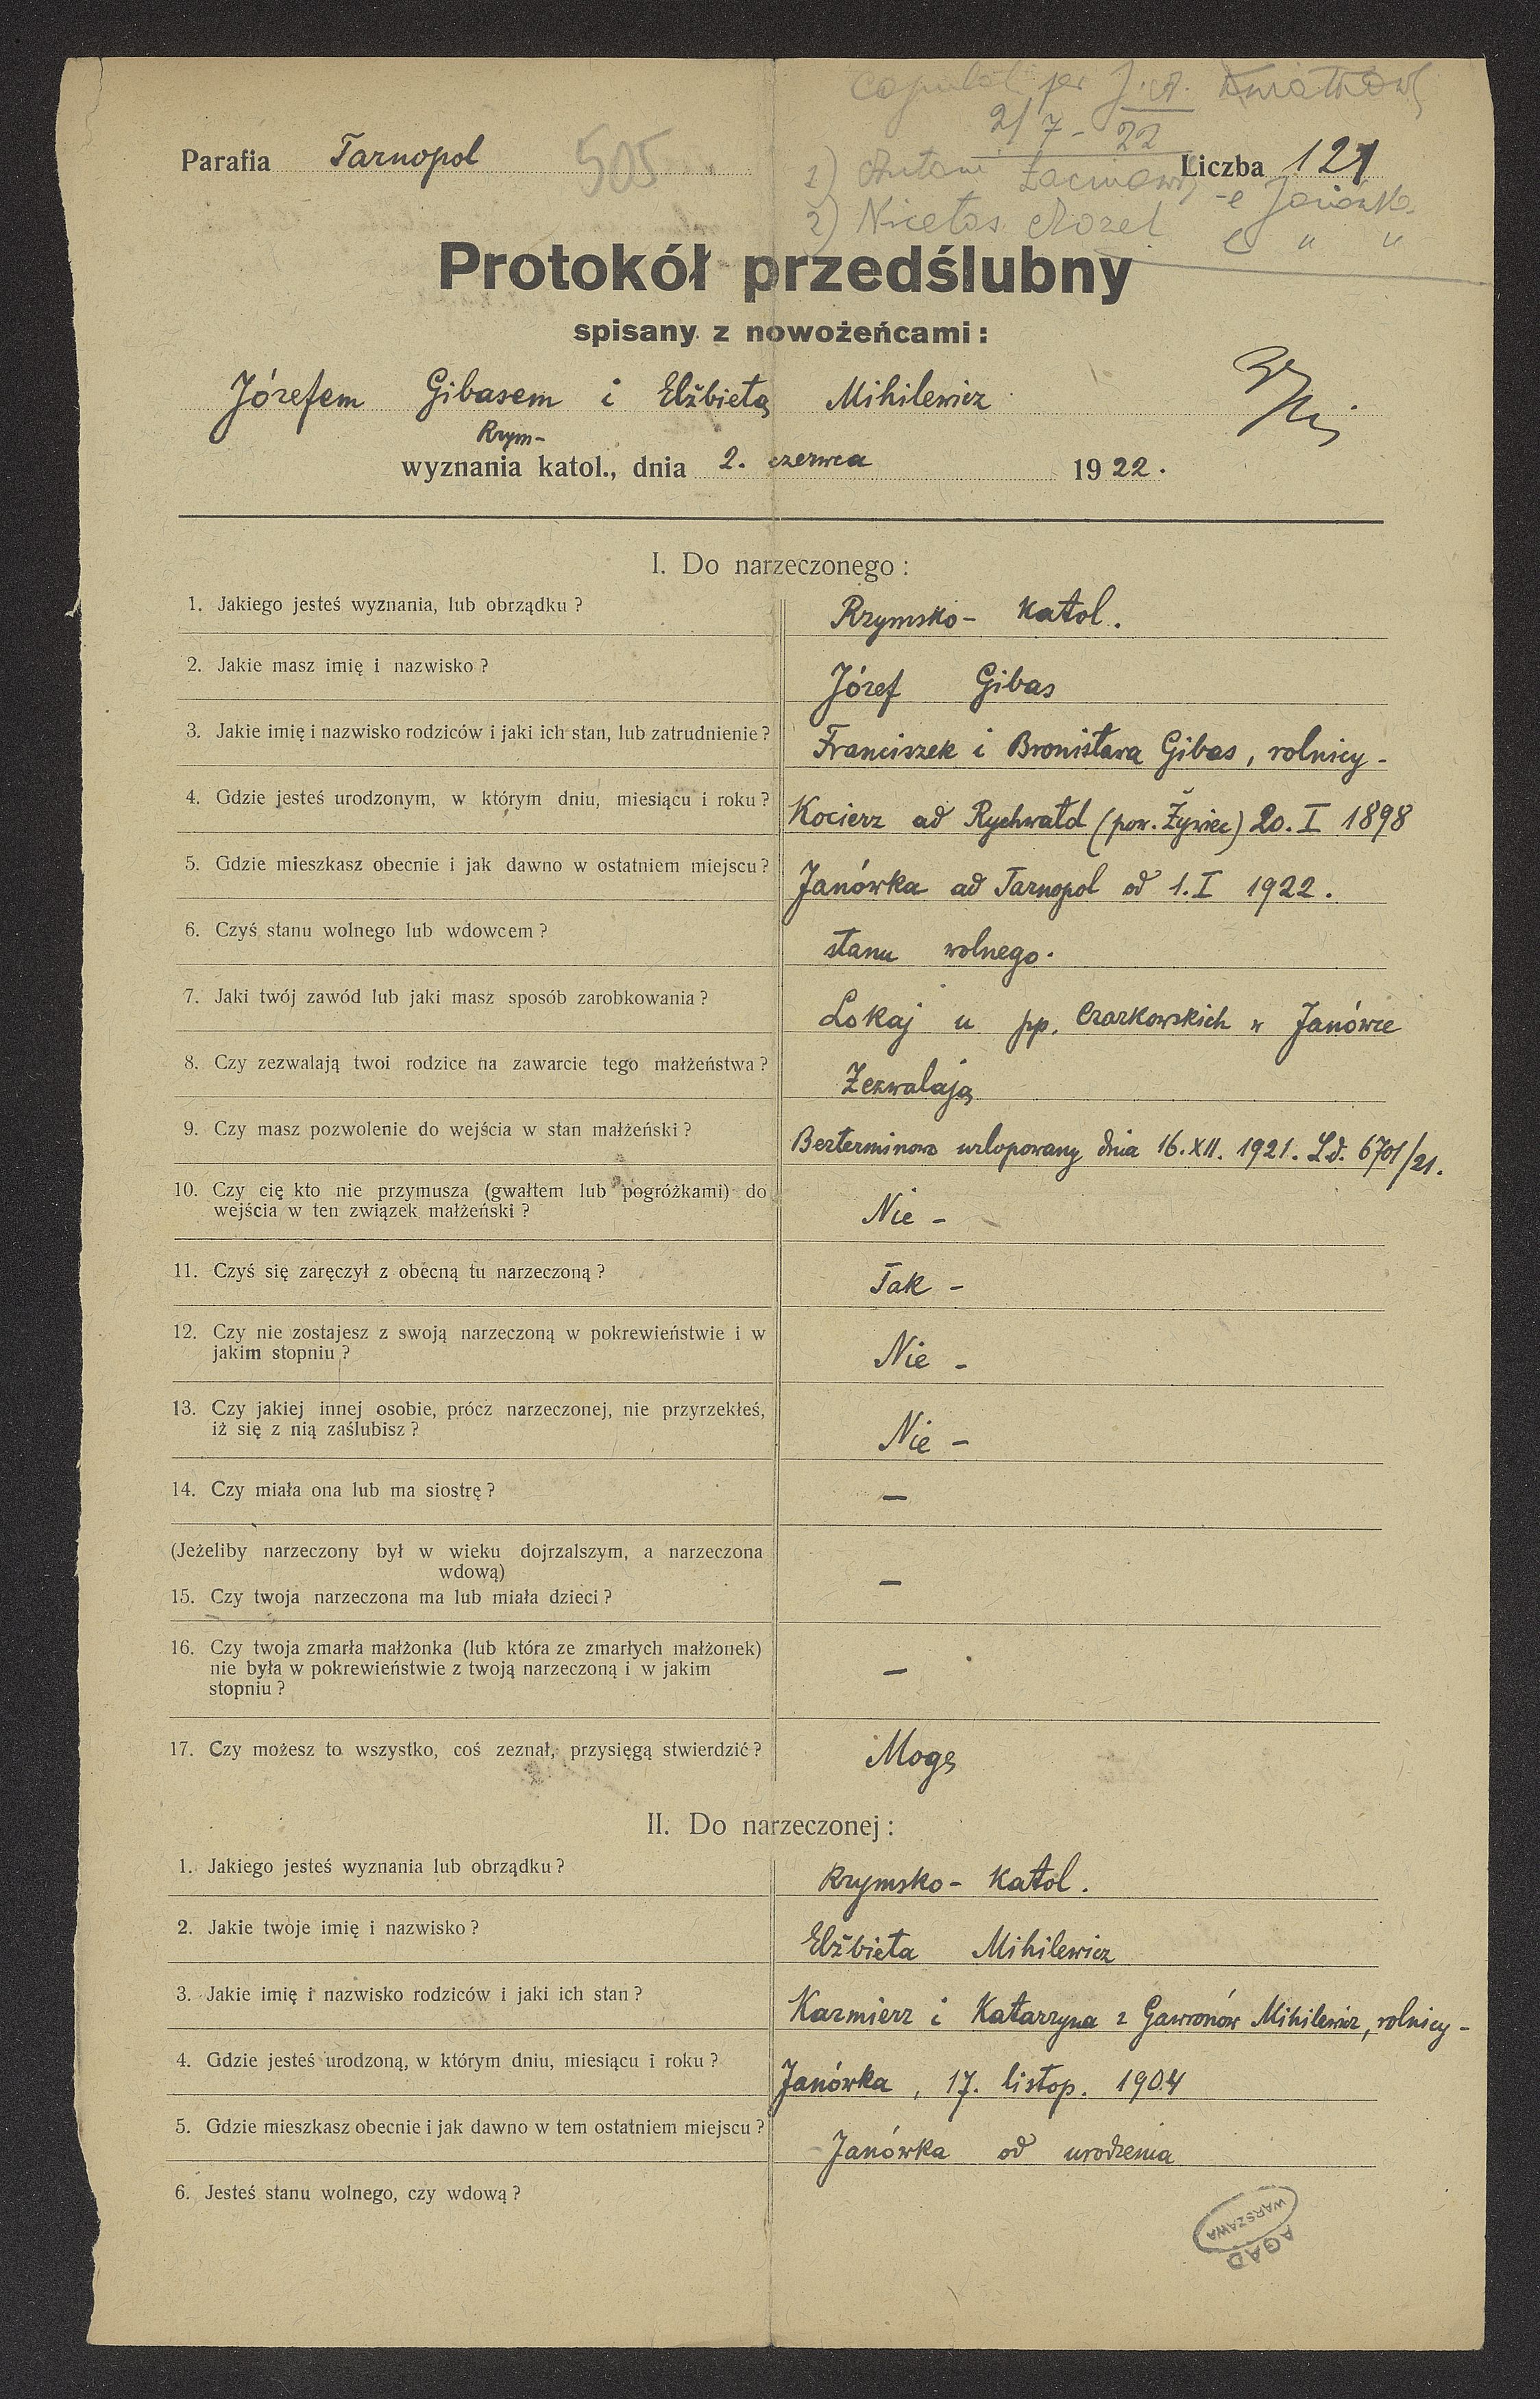 Copulati per J. A.
2/7 - 22
Parafia Tarnopol
505
Liczba 121
1) Antoni e Janówka
2) Nicetas Mozel e " "
Protokół przedślubny
spisany z nowożeńcami:
Józefem Gibasem i Elżbietą Mihilewicz
Rzym-
wyznania katol., dnia 2. czerwca 1922.
I. Do narzeczonego:
1. Jakiego jesteś wyznania, lub obrządku? Rzymsko- katol.
2. Jakie masz imię i nazwisko? Józef Gibas
3. Jakie imię i nazwisko rodziców i jaki ich stan, lub zatrudnienie? Franciszek i Bronisława Gibas, rolnicy -
4. Gdzie jesteś urodzonym, w którym dniu, miesiącu i roku? Kocierz ad Rychwałd (pow. Żywiec) 20. I 1898
5. Gdzie mieszkasz obecnie i jak dawno w ostatniem miejscu? Janówka ad Tarnopol od 1. I 1922.
6. Czyś stanu wolnego lub wdowcem? stanu wolnego.
7. Jaki twój zawód lub jaki masz sposób zarobkowania? Lokaj u pp. Czarkowskich w Janówce
8. Czy zezwalają twoi rodzice na zawarcie tego małżeństwa? Zezwalają
9. Czy masz pozwolenie do wejścia w stan małżeński? Bezterminowo urlopowany dnia 16. XII. 1921. Ld. 6701/21.
10. Czy cię kto nie przymusza (gwałtem lub pogróżkami) do
wejścia w ten związek małżeński? Nie -
11. Czyś się zaręczył z obecną tu narzeczoną? Tak -
12. Czy nie zostajesz z swoją narzeczoną w pokrewieństwie i w
jakim stopniu? Nie -
13. Czy jakiej innej osobie, prócz narzeczonej, nie przyrzekłeś,
iż się z nią zaślubisz? Nie -
14. Czy miała ona lub ma siostrę? —
(Jeżeliby narzeczony był w wieku dojrzalszym, a narzeczona
wdową)
15. Czy twoja narzeczona ma lub miała dzieci? —
16. Czy twoja zmarła małżonka (lub która ze zmarłych małżonek)
nie była w pokrewieństwie z twoją narzeczoną i w jakim
stopniu? —
17. Czy możesz to wszystko, coś zeznał, przysięgą stwierdzić? Mogę
II. Do narzeczonej:
1. Jakiego jesteś wyznania lub obrządku? Rzymsko- katol.
2. Jakie twoje imię i nazwisko? Elżbieta Mihilewicz
3. Jakie imię i nazwisko rodziców i jaki ich stan? Kazmierz i Katarzyna z Gawronów Mihilewicz, rolnicy -
4. Gdzie jesteś urodzoną, w którym dniu, miesiącu i roku? Janówka, 17. listop. 1904
5. Gdzie mieszkasz obecnie i jak dawno w tem ostatniem miejscu? Janówka od urodzenia
6. Jesteś stanu wolnego, czy wdową?
WARSZAWA
AGAD